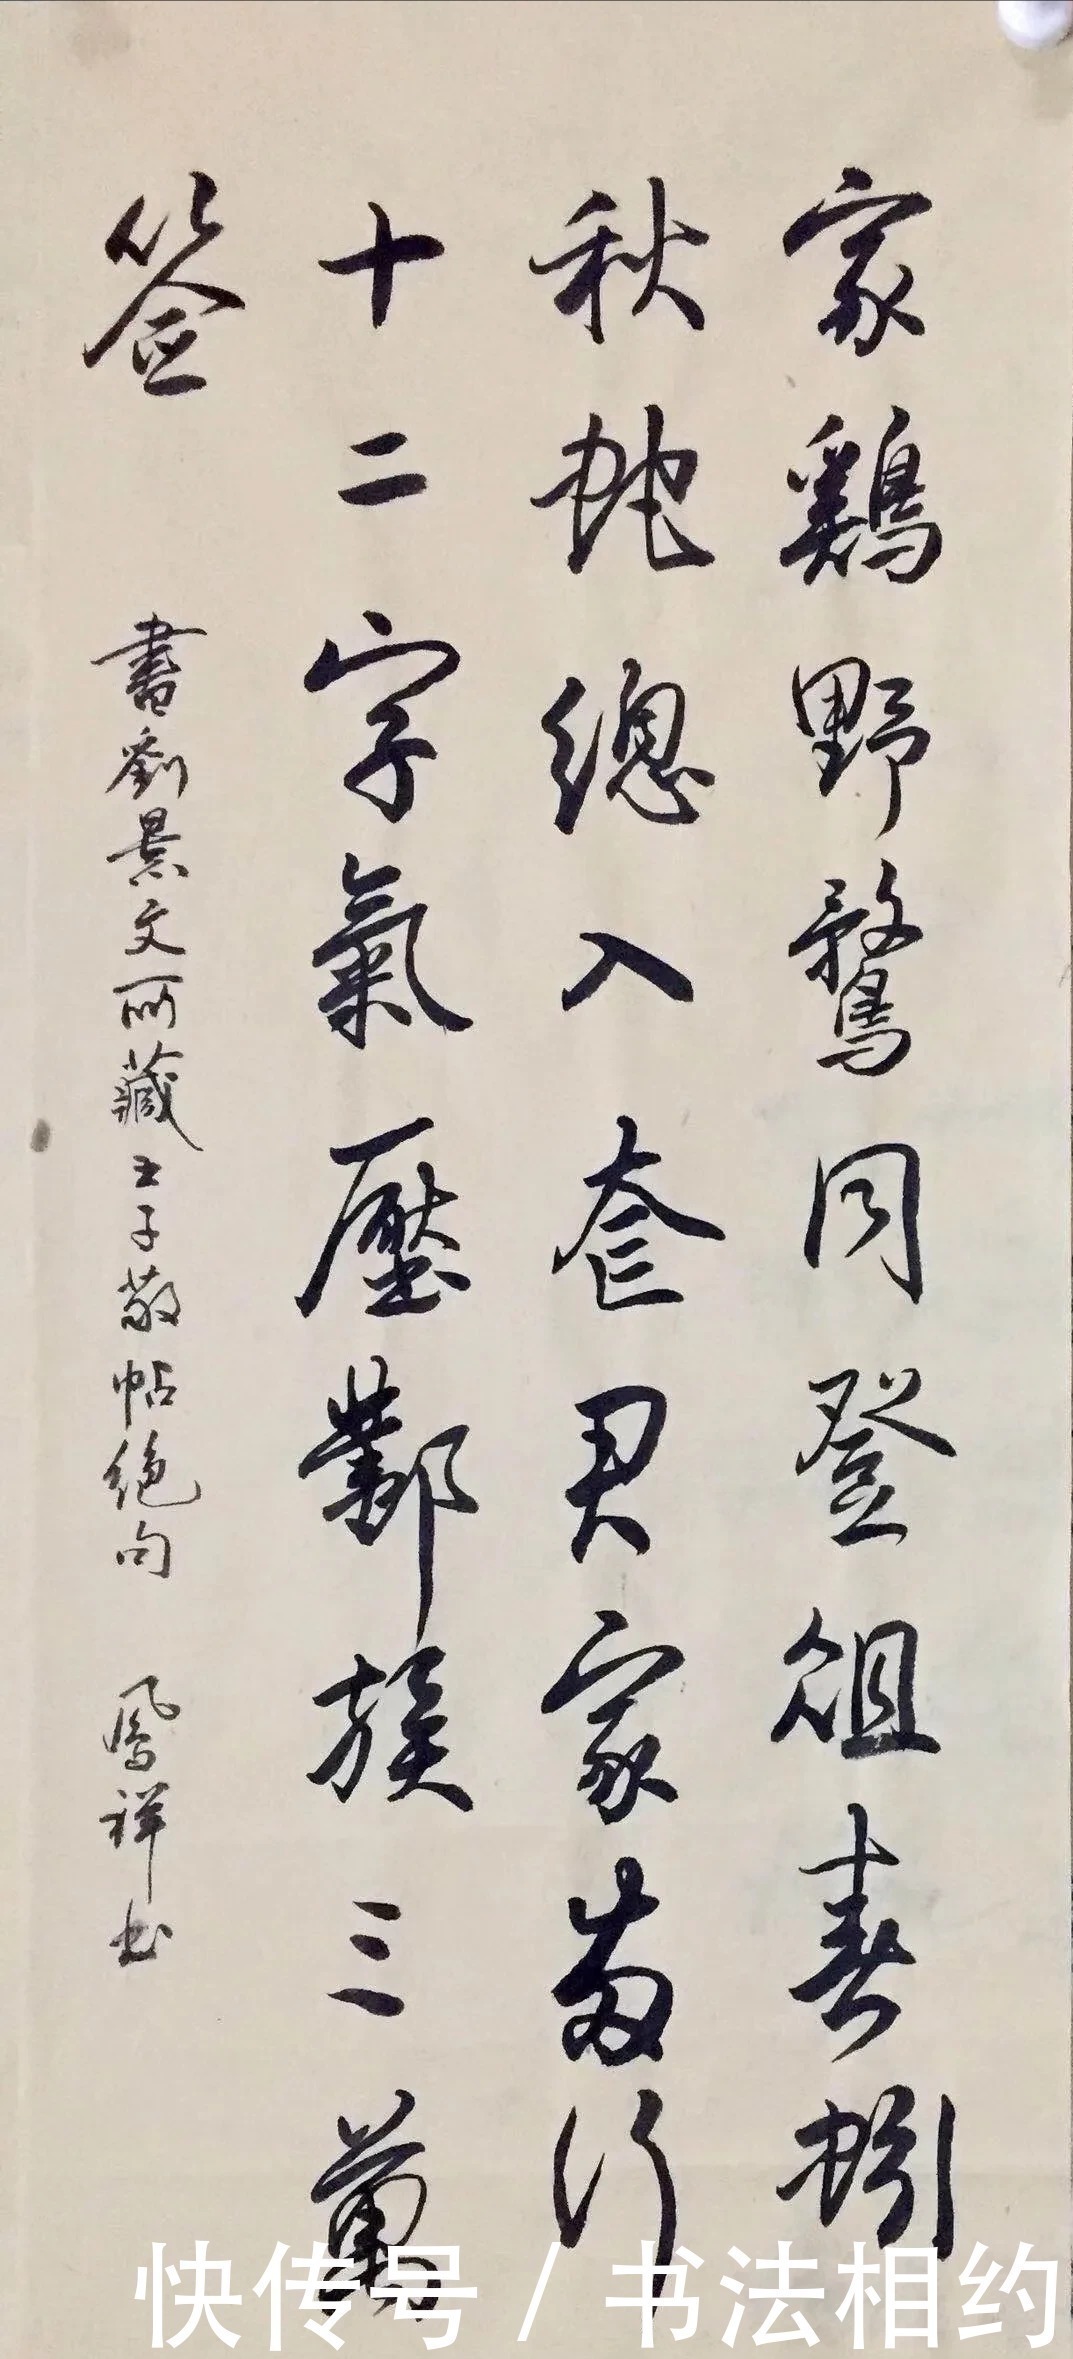 家鷄野鶩同登俎春蚓
秋蛇總入奁君家兩行
十二字氣壓鄴族三萬
签
書劉景文所藏王子敬帖絕句 鳳祥书
快传号 / 书法相约